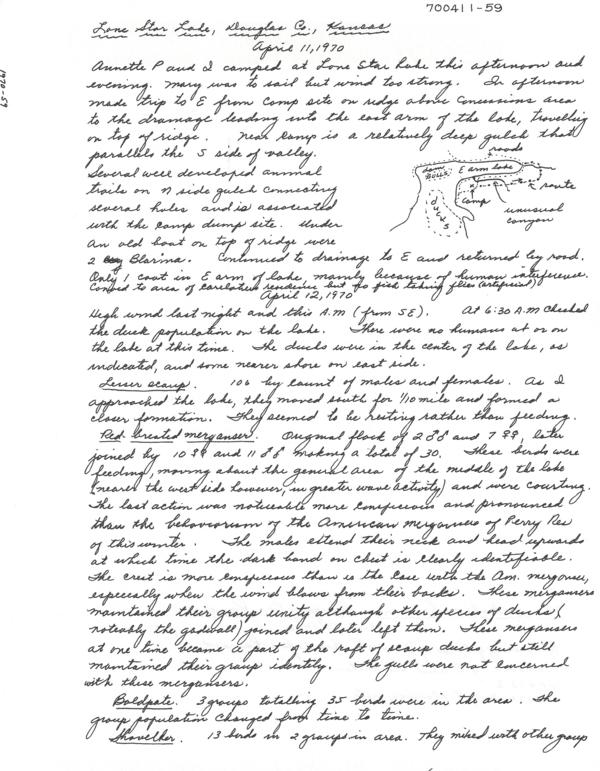 700411-59
1970-59
Lone Star Lake, Douglas Co., Kansas
April 11, 1970
Annette P and I camped at Lone Star Lake this afternoon and
evening. Mary was to sail but wind too strong. In afternoon
made trip to E from camp site on ridge above concessions area
to the drainage leading into the east arm of the lake, travelling
on top of ridge. Near camp is a relatively deep gulch that
parallels the S side of valley.
Several well developed animal
trails on N side gulch connecting
several holes and is associated
with the camp dump site. Under
an old boat on top of ridge were
2 Blarina. Continued to drainage to E and returned by road.
roads
dam
GULLS
E arm lake
route
camp
DUCKS
unusual
canyon
Only 1 coot in E arm of lake, mainly because of human interference.
to area of residence but no fish taking flies (artificial)
April 12, 1970
High wind last night and this A.M (from SE). At 6:30 A.M Checked
the duck population on the lake. There were no humans at or on
the lake at this time. The ducks were in the center of the lake, as
indicated, and some nearer shore on east side.
Lesser scaup. 106 by count of males and females. As I
approached the lake, they moved south for 1/10 mile and formed a
closer formation. They seemed to be resting rather than feeding.
Red-breasted merganser. Original flock of 2 ♂♂ and 7 ♀♀, later
joined by 10 ♀♀ and 11 ♂♂ making a total of 30. These birds were
feeding, moving about the general area of the middle of the lake
(nearer the west side however, in greater wave activity) and were courting.
The last action was noticeable more conspicuous and pronounced
than the behaviorism of the American mergansers of Perry Res
of this winter. The males extend their neck and head upwards
at which time the dark band on chest is clearly identifiable.
The crest is more conspicuous than is the case with the Am. merganser,
especially when the wind blows from their backs. These mergansers
maintained their group unity although other species of ducks (
noteably the gadwall) joined and later left them. These mergansers
at one time became a part of the raft of scaup ducks but still
maintained their group identity. The gulls were not concerned
with these mergansers.
Baldpate. 3 groups totalling 35 birds were in the area. The
group population changed from time to time.
Shoveller. 13 birds in 2 groups in area. They mixed with other group